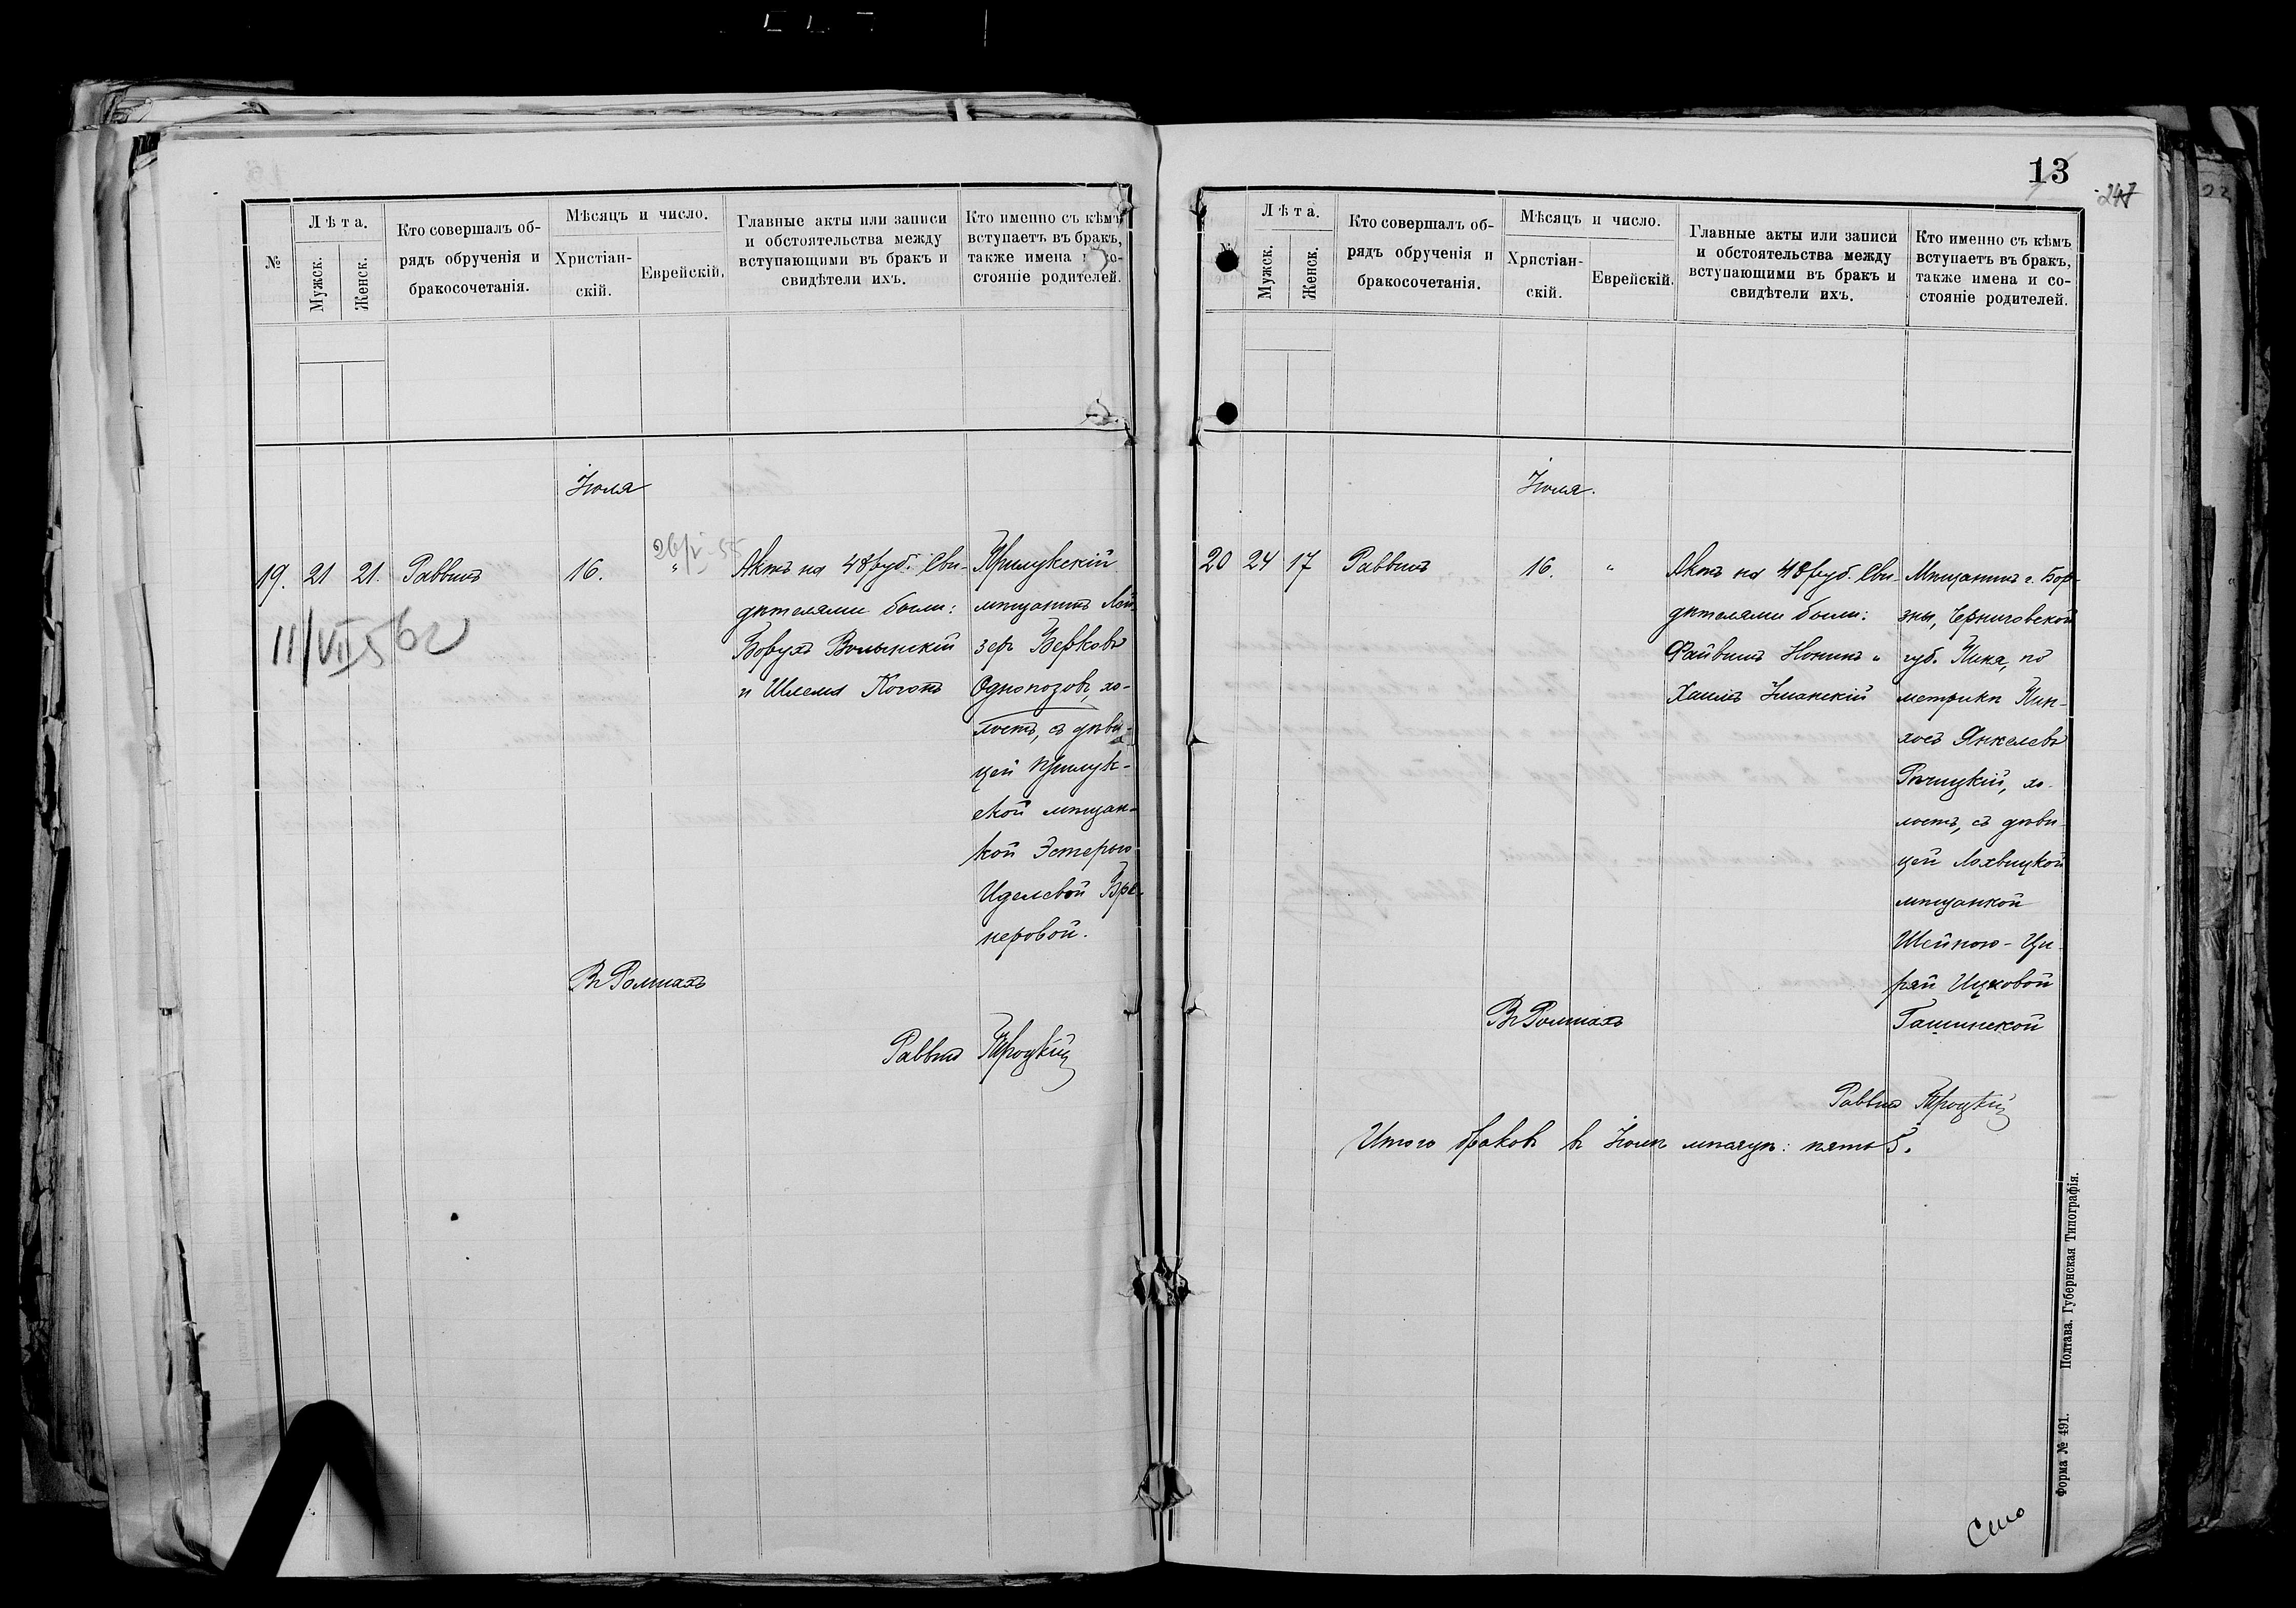 №
Лѣта.
Мужск.
Женск.
Кто совершалъ об-
рядъ обрученія и
бракосочетанія.
Мѣсяцъ и число.
Христіан-
скій.
Еврейскій.
Главные акты или записи
и обстоятельства между
вступающими въ бракъ и
свидѣтели ихъ.
Кто именно съ кѣмъ
вступаетъ въ бракъ,
также имена и со-
стояніе родителей.
Іюля
19. 21 21. Раввинъ 16. "
11/VII 56 г
Актъ на 48 руб. Сви-
дѣтелями были:
Борухъ Волынскій
и Шлема Коганъ
Прилукскій
мѣщанинъ Лей-
зеръ Берковъ
Однопозовъ, хо-
лостъ, съ дѣви-
цей Прилук-
ской мѣщан-
кой Эстерью
Иделевой Бре-
неровой.
Въ Ромнахъ
Раввинъ Троцкій
13
247
№
Лѣта.
Мужск.
Женск.
Кто совершалъ об-
рядъ обрученія и
бракосочетанія.
Мѣсяцъ и число.
Христіан-
скій.
Еврейскій.
Главные акты или записи
и обстоятельства между
вступающими въ бракъ и
свидѣтели ихъ.
Кто именно съ кѣмъ
вступаетъ въ бракъ,
также имена и со-
стояніе родителей.
Іюля.
20 24 17 Раввинъ 16. "
Актъ на 48 руб. Сви-
дѣтелями были:
Файвишъ Нонинъ и
Хаимъ Уманскій
Мѣщанинъ г. Бор-
зны, Черниговской
губ. Пиня, по
метрикѣ Пин-
хосъ Янкелевъ
Рѣчицкій, хо-
лостъ, съ дѣви-
цей Лохвицкой
мѣщанкой
Шейною-Ци-
рей Ицковой
Гашинской
Въ Ромнахъ
Раввинъ Троцкій
Итого браковъ въ Іюлѣ мѣсяцѣ: пять 5.
Форма № 491. Полтава. Губернская Типографія.